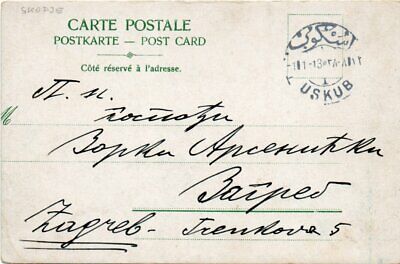 SKOPJE
CARTE POSTALE
POSTKARTE — POST CARD
Côté réservé à l'adresse.
USKUB
П. н.
госпођи
Зорки Арсенићки
Загреб
Zagreb - Trenkova 5